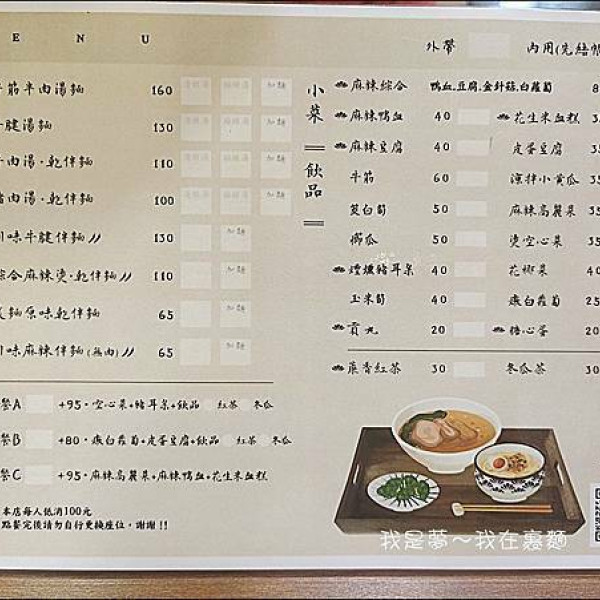 E N U
外帶 內用(先結帳
牛筋半肉湯麵 160
腱湯麵 130
肉湯·乾伴麵 110
豬肉湯·乾伴麵 100
川味牛腱伴麵 130
綜合麻辣燙·乾伴麵 110
麵原味乾伴麵 65
川味麻辣伴麵(無肉) 65
加麵
小菜
飲品
麻辣綜合 鴨血.豆腐.金針菇.白蘿蔔 8
麻辣鴨血 40 花生米血糕 3
麻辣豆腐 40 皮蛋豆腐 3
牛筋 60 涼拌小黃瓜 35
茭白筍 50 麻辣高麗菜 35
櫛瓜 50 燙空心菜 35
煙燻豬耳朵 40 花椰菜 40
玉米筍 40 嫩白蘿蔔 25
貢丸 20 糖心蛋 20
蔗香紅茶 30 冬瓜茶 30
餐A +95·空心菜+豬耳朵+飲品 紅茶 冬瓜
餐B +80·嫩白蘿蔔+皮蛋豆腐+飲品 紅茶 冬瓜
餐C +95·麻辣高麗菜+麻辣鴨血+花生米血糕
本店每人低消100元
點餐完後請勿自行更換座位，謝謝!!
我是夢～我在裏麵